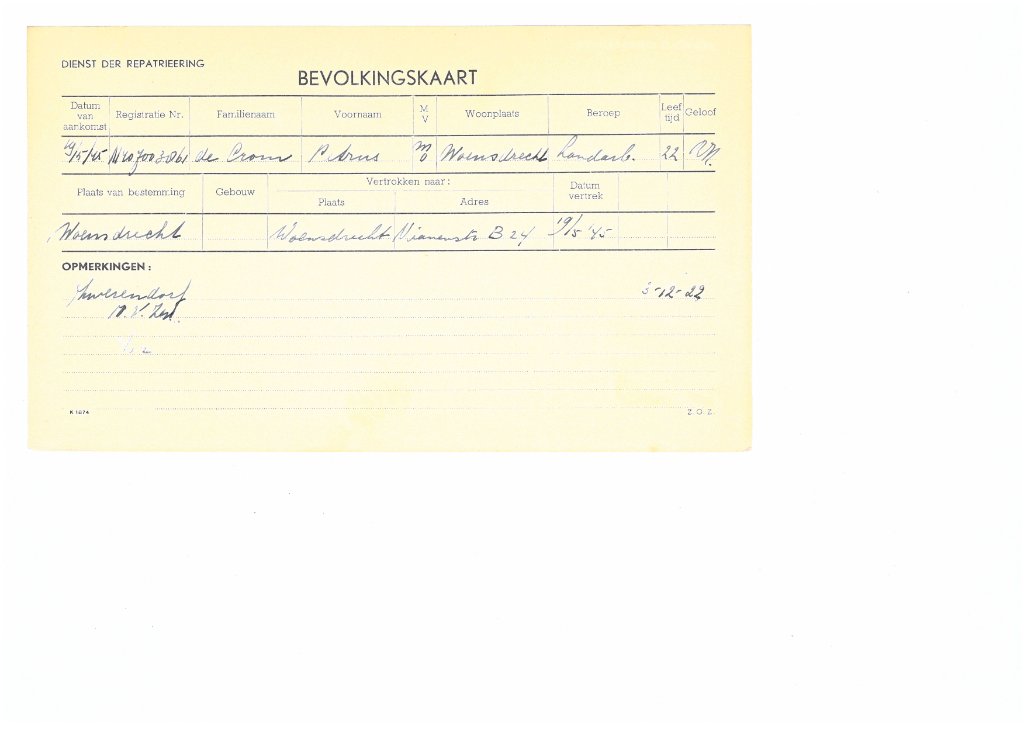 DIENST DER REPATRIEERING
BEVOLKINGSKAART
Datum van aankomst Registratie Nr. Familienaam Voornaam M V Woonplaats Beroep Leef tijd Geloof
19/5/45 de Crom P Arnus m Woensdrecht Landarb. 22
Plaats van bestemming Gebouw Vertrokken naar: Datum vertrek
Plaats Adres
Woensdrecht Woensdrecht Vianenstr B 24 19/5 '45
OPMERKINGEN:
3-12-22
K 1674 Z.O.Z.